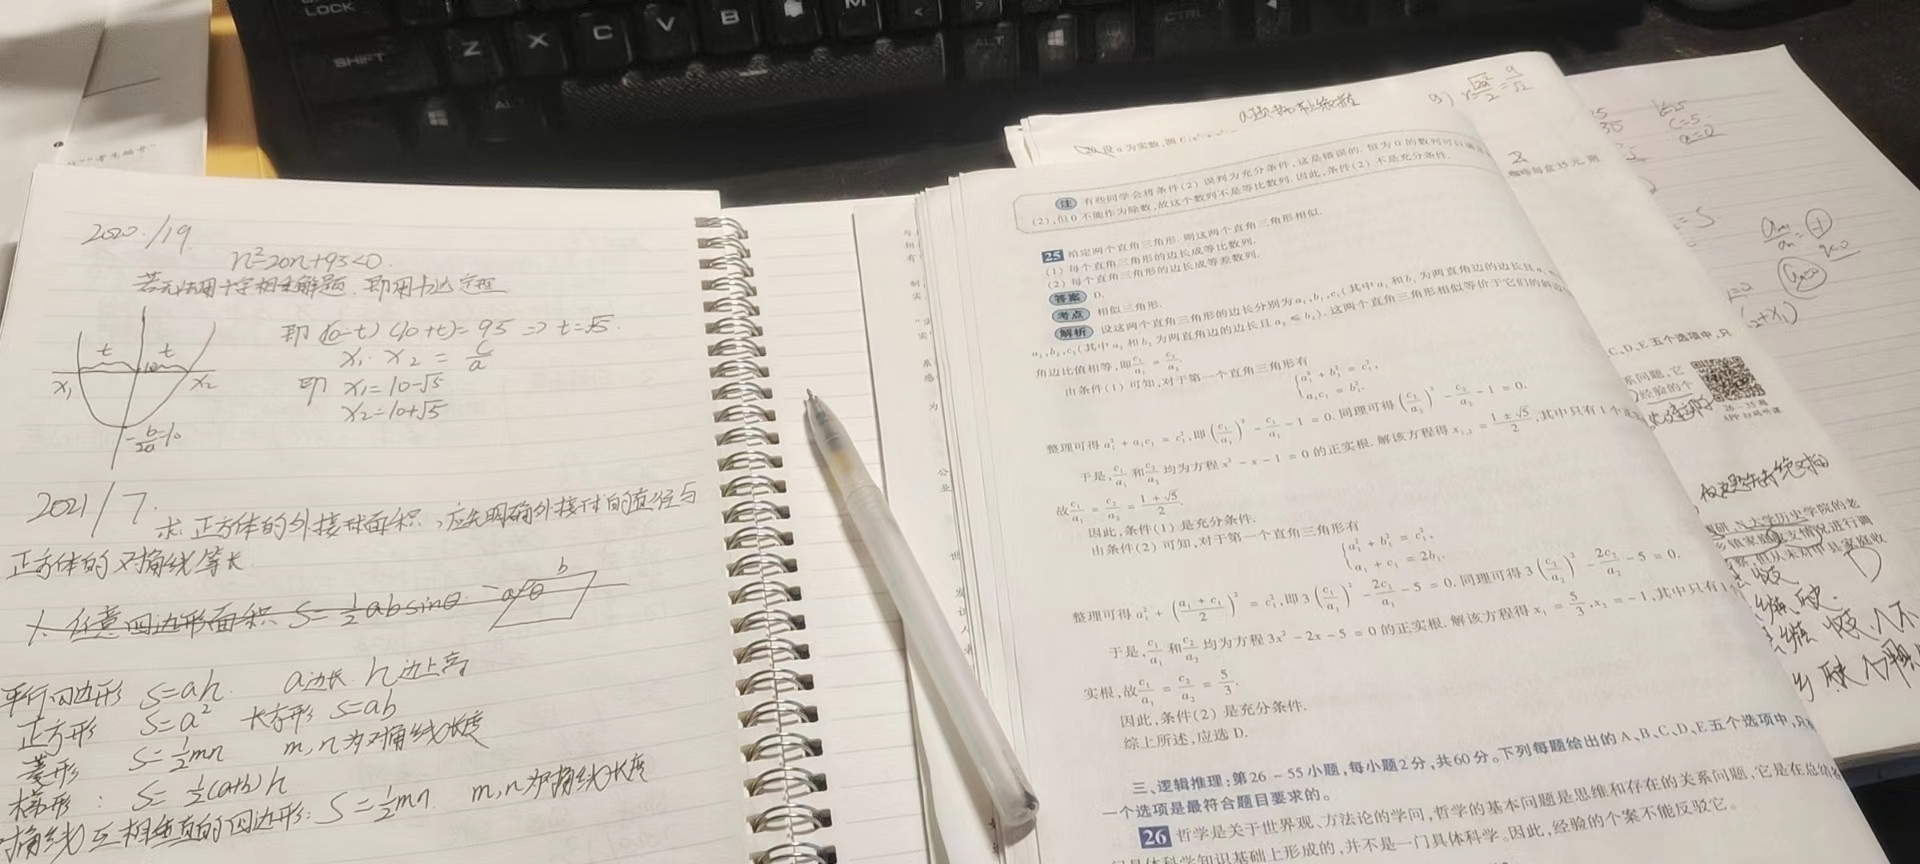 LOCK
SHIFT
Z X C V B M
ALT
ALT
CTRL
2020/19
n²-20n+95<0
若无法用十字相乘解题,即用韦达定理
即(10-t)(10+t)=95 => t=√5.
x₁·x₂=c/a
即 x₁=10-√5
x₂=10+√5
t t
x₁ 10 x₂
-b/2a=10
2021/7.
求正方体的外接球面积,应先明确外接球的直径与
正方体的对角线等长
任意四边形面积 S=½absinθ
a θ b
平行四边形 S=ah. a边长 h边上高
正方形 S=a² 长方形 S=ab
菱形 S=½mn m,n为对角线长度
梯形: S=½(a+b)h
对角线互相垂直的四边形: S=½mn m,n为对角线长度
设a为实数,圆C
注 有些同学会将条件(2)误判为充分条件,这是错误的.恒为0的数列可以满足
(2),但0不能作为除数,故这个数列不是等比数列.因此,条件(2)不是充分条件.
25 给定两个直角三角形.则这两个直角三角形相似.
(1)每个直角三角形的边长成等比数列.
(2)每个直角三角形的边长成等差数列.
答案 D.
考点 相似三角形.
解析 设这两个直角三角形的边长分别为a₁,b₁,c₁(其中a₁和b₁为两直角边的边长且
a₂,b₂,c₂(其中a₂和b₂为两直角边的边长且a₂≤b₂).这两个直角三角形相似等价于它们的斜边
角边比值相等,即c₁/a₁=c₂/a₂.
由条件(1)可知,对于第一个直角三角形有
{a₁²+b₁²=c₁²,
a₁c₁=b₁².
整理可得a₁²+a₁c₁=c₁²,即(c₁/a₁)²-c₁/a₁-1=0.同理可得(c₂/a₂)²-c₂/a₂-1=0.
于是,c₁/a₁和c₂/a₂均为方程x²-x-1=0的正实根.解该方程得x₁,₂=(1±√5)/2,其中只有1个正
故c₁/a₁=c₂/a₂=(1+√5)/2.
因此,条件(1)是充分条件.
由条件(2)可知,对于第一个直角三角形有
{a₁²+b₁²=c₁²,
a₁+c₁=2b₁.
整理可得a₁²+((a₁+c₁)/2)²=c₁²,即3(c₁/a₁)²-2c₁/a₁-5=0.同理可得3(c₂/a₂)²-2c₂/a₂-5=0.
于是,c₁/a₁和c₂/a₂均为方程3x²-2x-5=0的正实根.解该方程得x₁=5/3,x₂=-1,其中只有1
实根,故c₁/a₁=c₂/a₂=5/3.
因此,条件(2)是充分条件.
综上所述,应选D.
三、逻辑推理:第26-55小题,每小题2分,共60分。下列每题给出的A、B、C、D、E五个选项中,只
一个选项是最符合题目要求的。
26 哲学是关于世界观、方法论的学问,哲学的基本问题是思维和存在的关系问题,它是在总结
门具体科学知识基础上形成的,并不是一门具体科学。因此,经验的个案不能反驳它。
咖啡每盒35元,则
C、D、E五个选项中,只
系问题,它
经验的个
26-35题
N大学历史学院的老